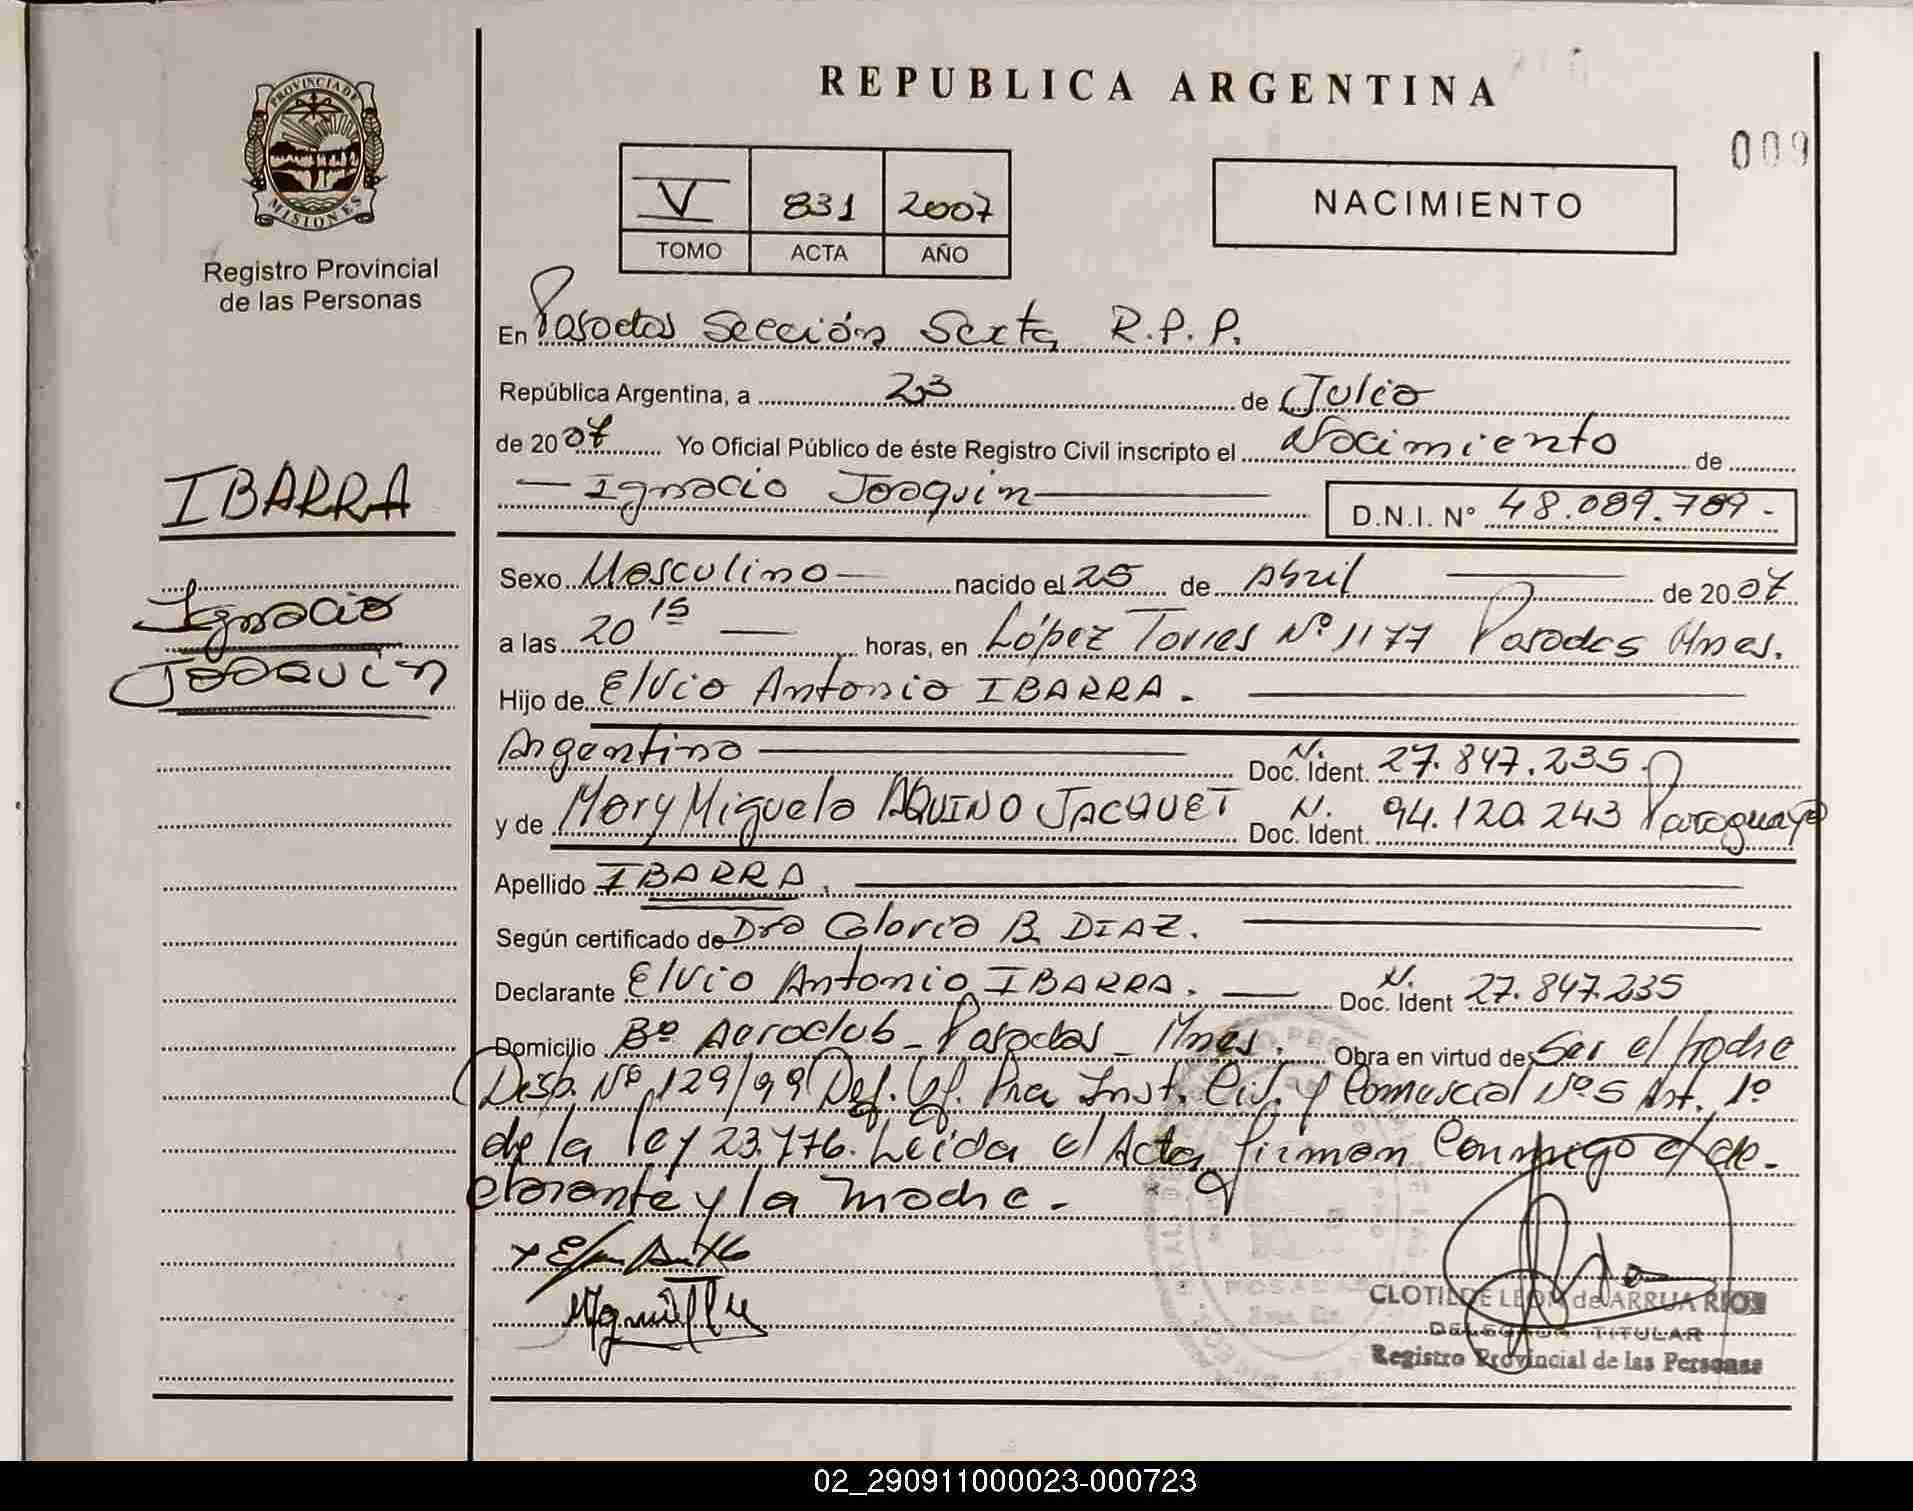 REPUBLICA ARGENTINA
009
PROVINCIA DE
MISIONES
Registro Provincial
de las Personas
V 831 2007
TOMO ACTA AÑO
NACIMIENTO
En Posadas Sección Sexta R.P.P.
República Argentina, a 23 de Julio
de 2007 Yo Oficial Público de éste Registro Civil inscripto el Nacimiento de
Ignacio Joaquin D.N.I. N° 48.089.789.-
IBARRA
Ignacio
JOAQUIN
Sexo Masculino nacido el 25 de Abril de 2007
a las 20 15 horas, en López Torres Nº 1177 Posadas Mnes.
Hijo de Elvio Antonio IBARRA.
Argentino N. Doc. Ident. 27.847.235.
y de Mary Miguela AQUINO JACQUET N. Doc. Ident. 94.120.243 Paraguaya
Apellido IBARRA.
Según certificado de Dra Gloria B. DIAZ.
Declarante Elvio Antonio IBARRA. N. Doc. Ident 27.847.235
Domicilio Bº Aeroclub - Posadas - Mnes. Obra en virtud de Ser el padre
Disp. Nº 129/99 Inst. Civ. y Comercial Nº 5 Art. 1º
de la ley 23.776. Leida el Acta firman Conmigo el de-
clarante y la madre.-
CLOTILDE LEON de ARRUA RIOS
DELEGADA TITULAR
Registro Provincial de las Personas
02_290911000023-000723